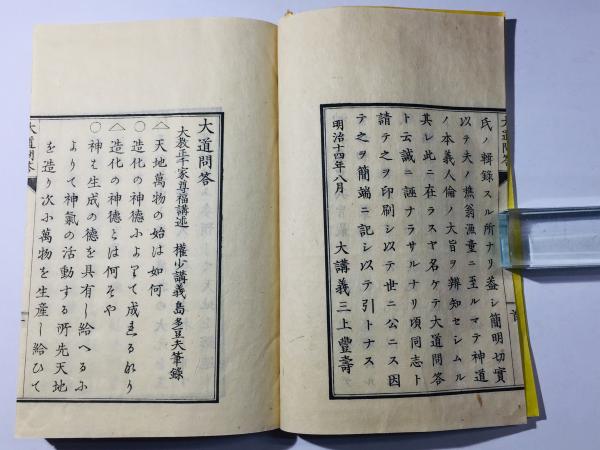 大道問答
氏ノ輯錄スル所ナリ蓋シ簡明切實
以テ夫ノ樵翁漁童ニ至ルマテ神道
ノ本義人倫ノ大旨ヲ辨知セシムル
其レ此ニ在ラスヤ名ケテ大道問答
ト云誠ニ誣ナラサルナリ頃同志ト
請テ之ヲ印刷シ以テ世ニ公ニス因
テ之ヲ簡端ニ記シ以テ引トナス
明治十四年八月　大講義三上豐壽
大道問答
大教正千家尊福講述　權少講義島多豆夫筆錄
△天地萬物の始は如何
○造化の神德によりて成れるなり
△造化の神德とは何そや
○神は生成の德を具有し給へるに
よりて神氣の活動する所先天地
を造り次に萬物を生産し給ひて
大道問答